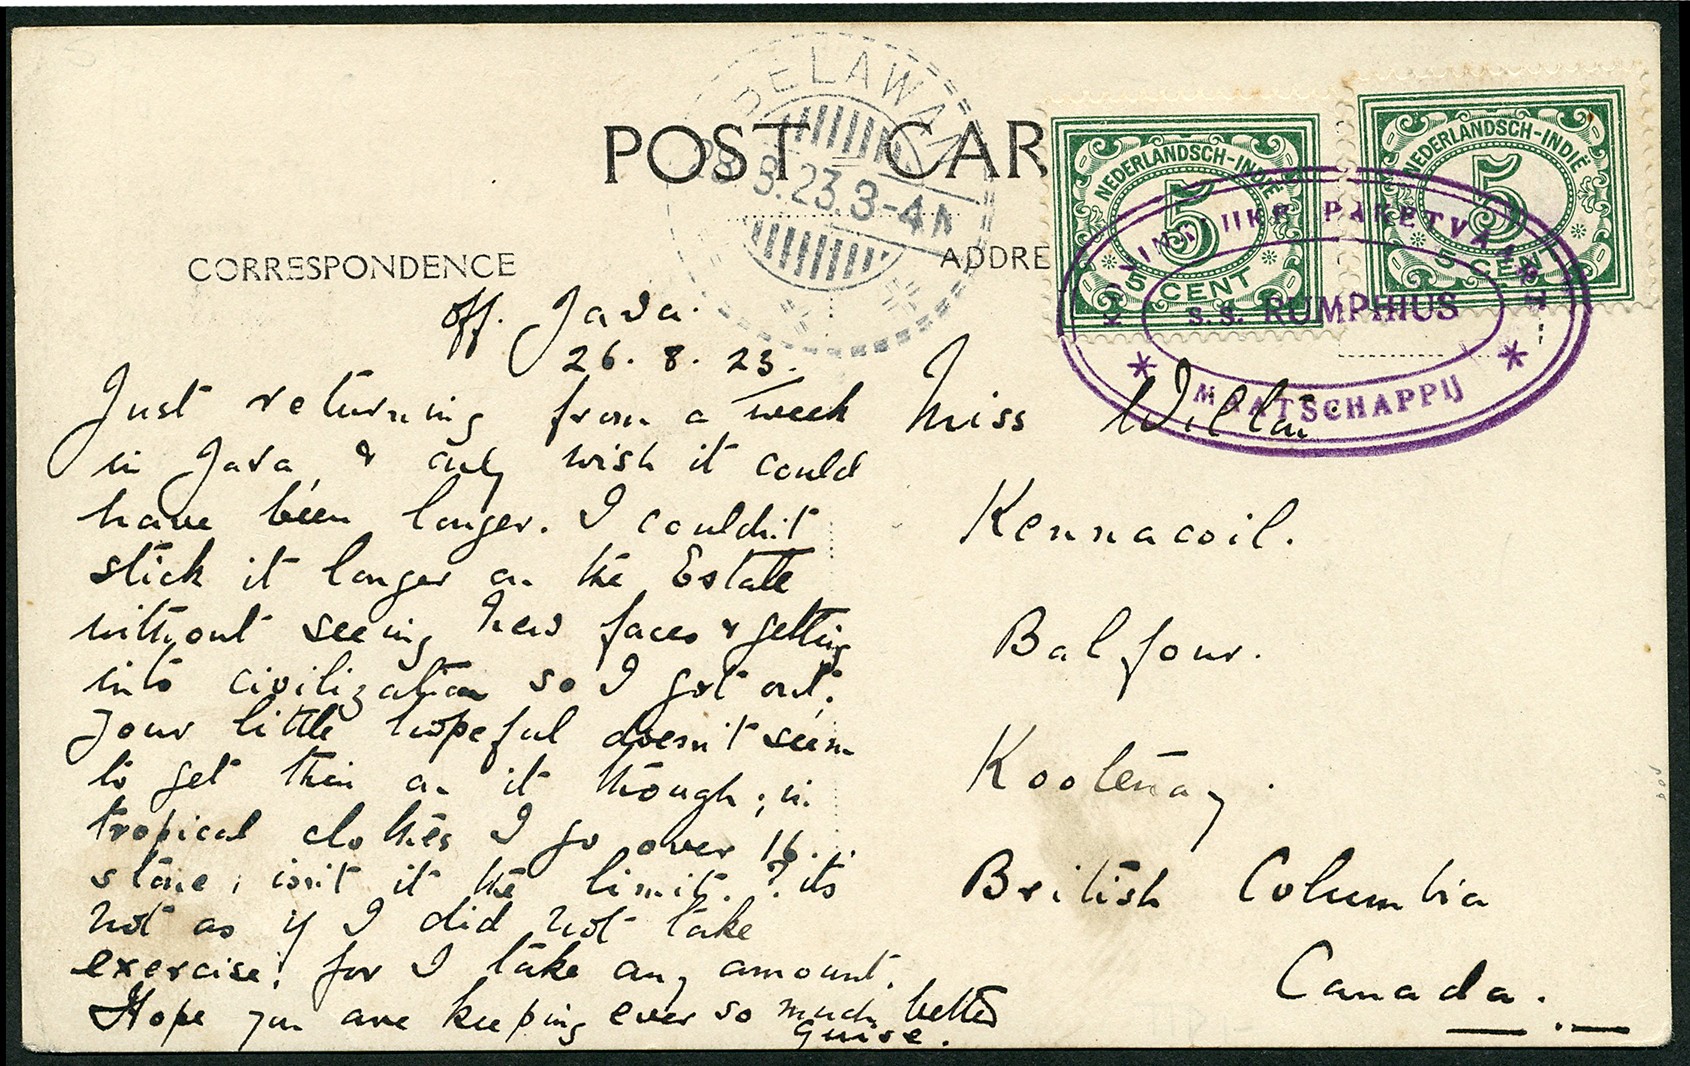 POST CAR
CORRESPONDENCE
ADDRE
BELAWAN
28.8.23.3-4N
NEDERLANDSCH-INDIË
5
5 CENT
NEDERLANDSCH-INDIË
5
5 CENT
KONINKLIJKE PAKETVAART
S.S. RUMPHIUS
* MAATSCHAPPIJ *
off. Java.
26. 8. 23.
Just returning from a week
in Java & only wish it could
have been longer. I couldn't
stick it longer on the Estate
without seeing new faces & getting
into civilization so I got out.
Your little hopeful doesn't seem
to get thin on it though; in
tropical clothes I go over 16
stone, isn't it the limit? its
not as if I did not take
exercise, for I take any amount.
Hope you are keeping ever so much better
Guise.
Miss
Kennacoil.
Balfour.
Kootenay.
British Columbia
Canada.